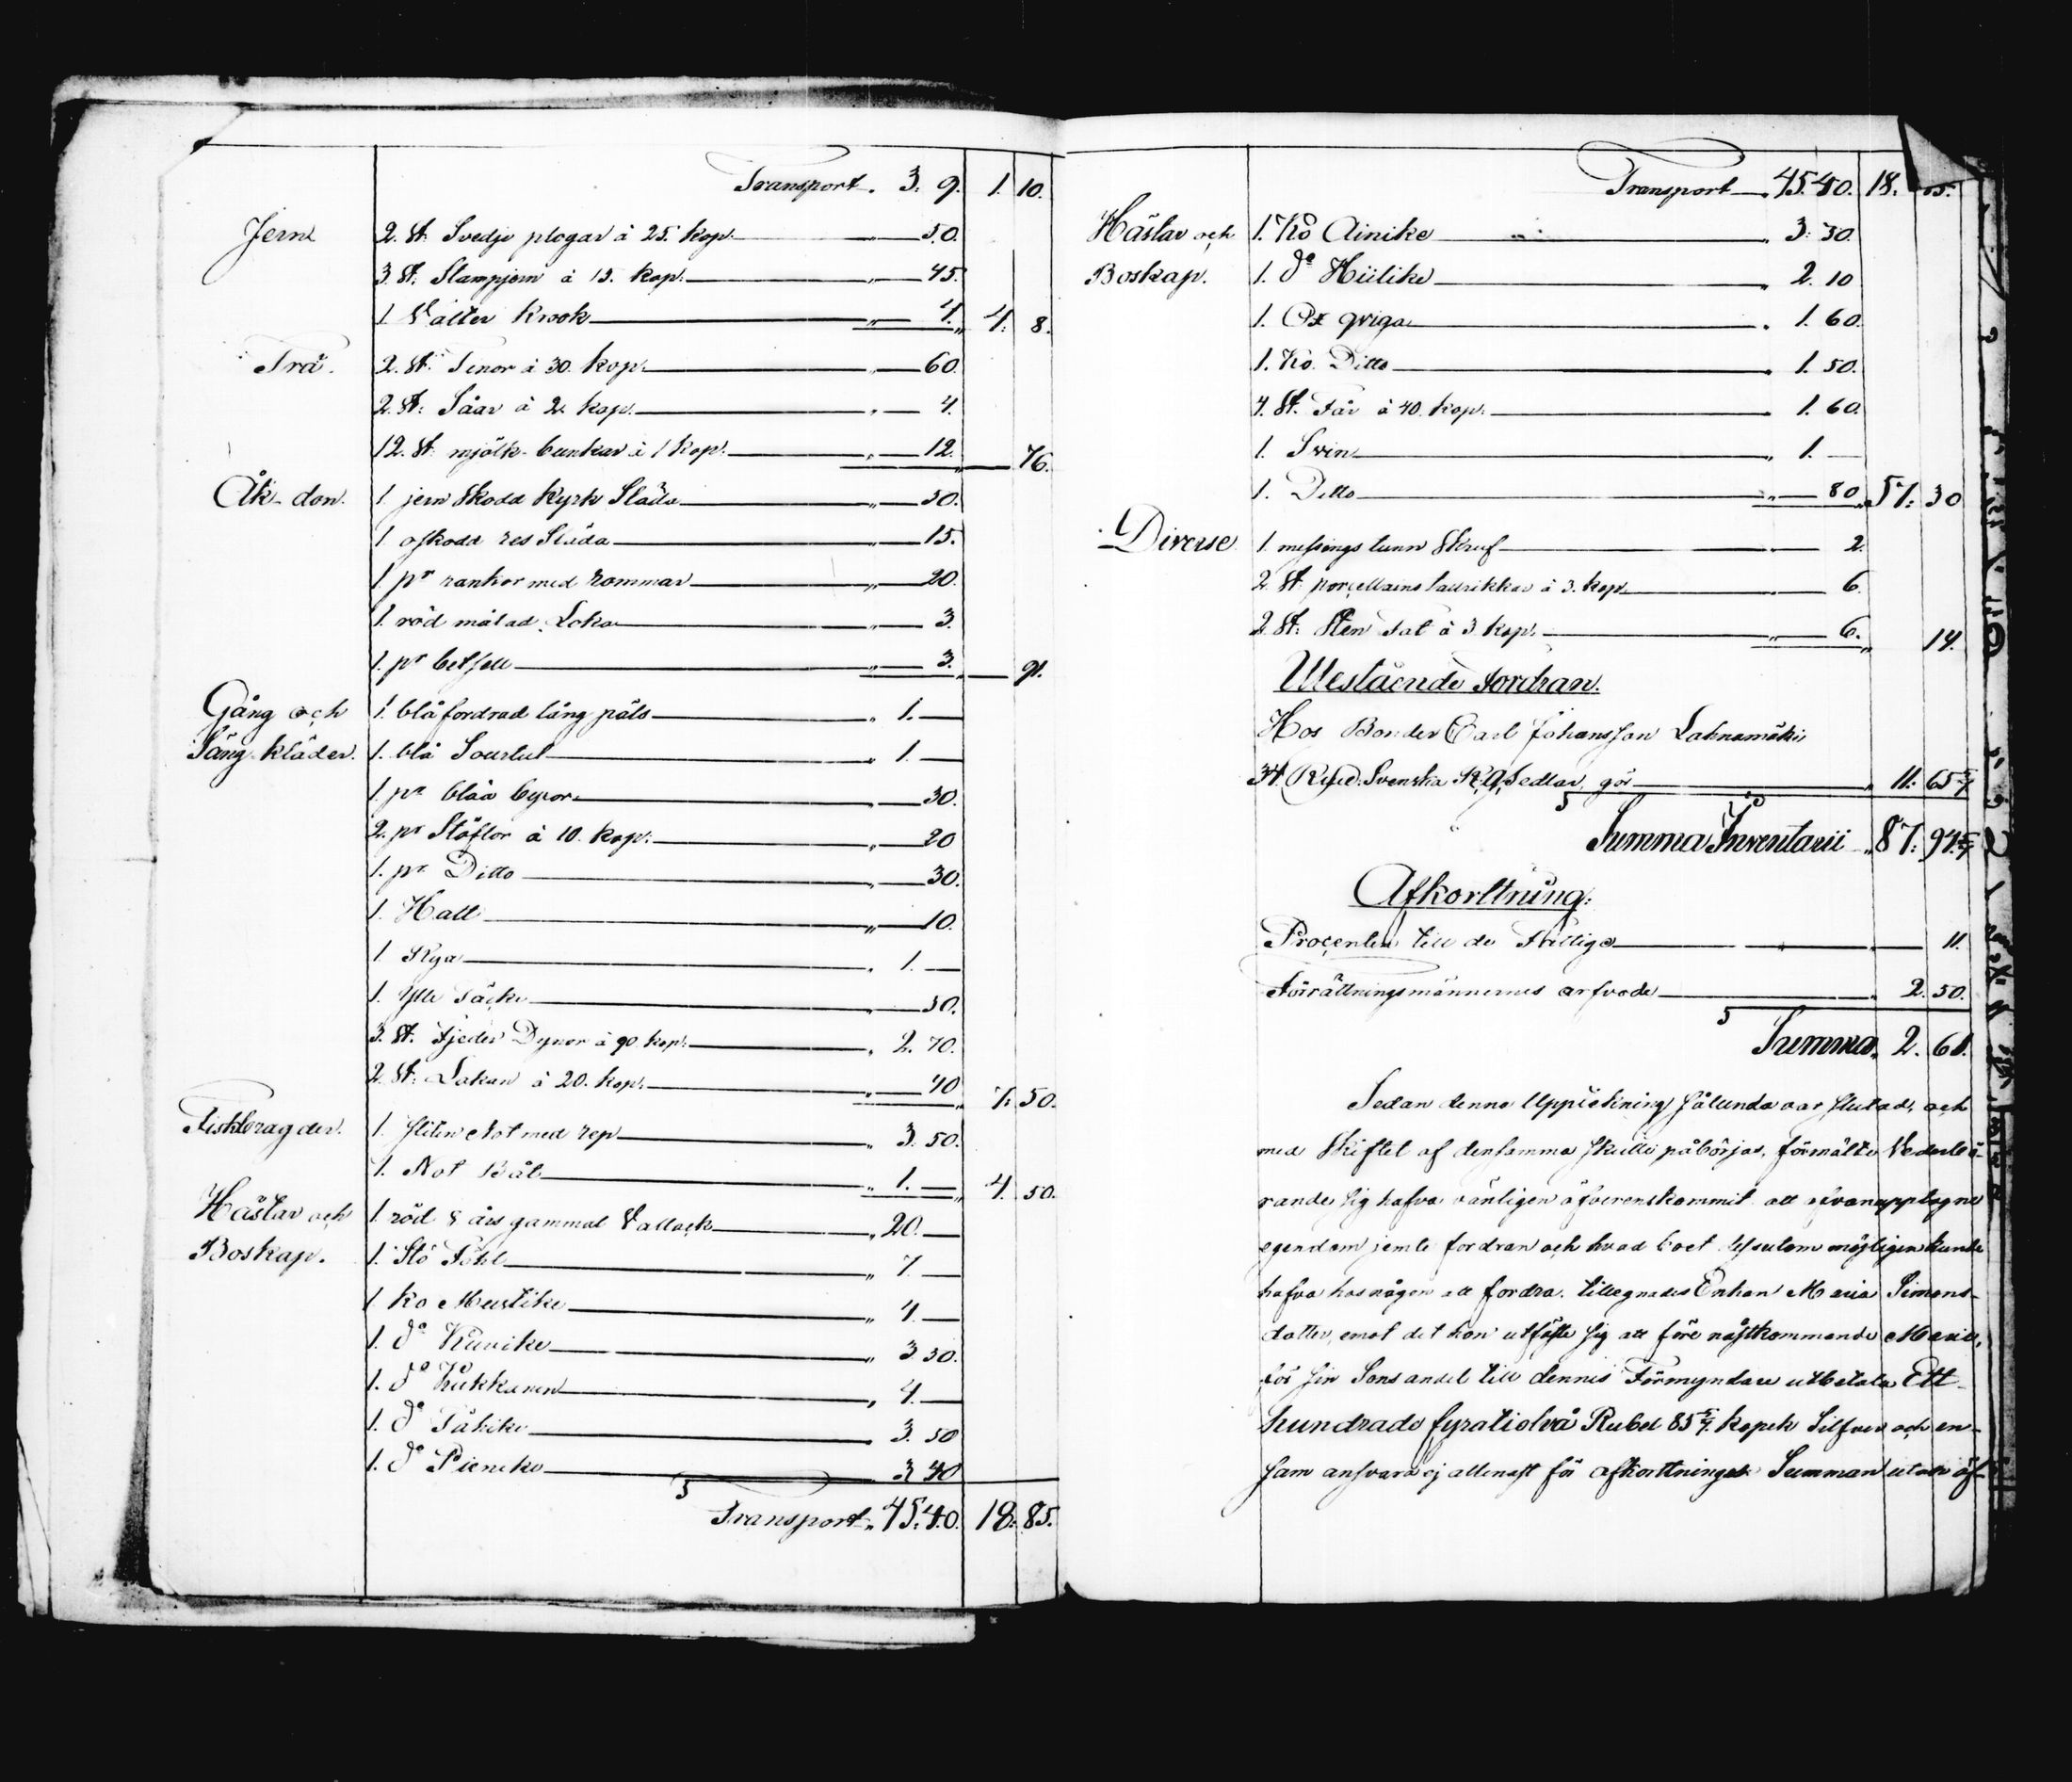 Transport . 3. 9. 1. 10.
Jern 2. St. Svedje plogar à 25. kop. „ 50.
3. St. Stampjern à 15. kop. „ 45.
1 Vatter Krook „ 4. 4. 8.
Trä. 2. St. Tinor à 30. kop. „ 60.
2. St. Såar à 2. kop. „ 4.
12. St. mjölk bunkar à 1 kop. „ 12. 76.
Åk-don. 1 jern Skodd Kyrk Släda „ 50.
1 oskodd res Släda „ 15.
1 pr rankor med rommar „ 20.
1. röd målad Loka „ 3.
1. pr betsell „ 3. 91.
Gång och 1. blåfordrad lång päls „ 1. —
Säng kläder. 1. blå Sourtut „ 1. —
1. pr blåa byxor „ 30.
2. pr Stöflor à 10. kop. „ 20
1. pr Ditto „ 30.
1. Hatt „ 10.
1 Rya „ 1. —
1. Ylle Täcke „ 50.
3. St. Fjeder Dynor à 90 kop. „ 2. 70.
2. St. Lakan à 20. kop. „ 40 7. 50.
Fiskbragder. 1. sliten Not med rep „ 3. 50.
1. Not Båt „ 1. — 4. 50.
Hästar och 1. röd 8 års gammal Vallack „ 20. —
Boskap. 1. Sto Fohl „ 7. —
1 ko Mustike „ 4. —
1. do Kunike „ 3 50.
1. do Kukkanen „ 4. —
1. do Tähike „ 3. 50
1. do Pieneke 3 40
Transport „ 45. 40. 18. 85.
Transport . 45. 40. 18. 85.
Hästar och 1. Ko Ainike „ 3. 30.
Boskap. 1. do Hülike „ 2. 10
1. Ox qviga „ 1. 60.
1. Ko Ditto „ 1. 50.
4. St. Får à 40. kop. „ 1. 60.
1. Svin „ 1. —
1. Ditto „ 80. 57. 30
Diverse 1. messings tunn Skruf — 2.
2. St. porcellains tallrikkar à 3. kop. — 6.
2. St. Sten Fat à 3 kop. „ 6. 14.
Utestående Fordran.
Hos Bonden Carl Johansson Lahnamäki
34. Rd Svenska R.G. Sedlar, gör „ 11. 65 5/7
Summa Inventarii „ 87. 94 5/7
Afkorttning:
Procenten till de Fattiga 11.
Förrättningsmännernes arfvode „ 2. 50.
Summa „ 2. 61.
Sedan denna Uppteckning sålunda var slutad, och
med Skiftet af densamma skulle påbörjas, förmälte Vederbö-
rande sig hafva vänligen öfverenskommit att ofvanupptagne
egendom jemte fordran och hvad boet dessutom möjligen kunde
hafva hos någon att fordra, tillegnades Enkan Maria Simons-
dotter, emot det hon utfäste sig att före nästkommande Marie,
för sin Sons andel till dennes Förmyndare utbetala Ett-
hundrade fyratiotvå Rubel 85 5/7 kopek Silfver och en-
sam ansvara ej allenast för afkorttnings Summan utan äf-